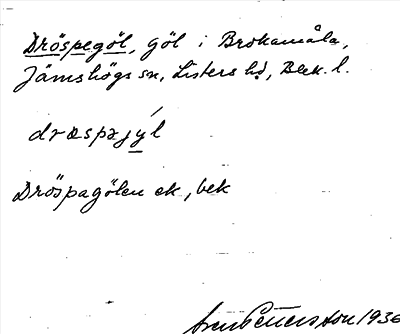 Dröspegöl, göl i Brokamåla,
Jämshögs sn, Listers hd, Blek. l.
dræspəjýl
Dröspagölen ek, bek
Pettersson 1936